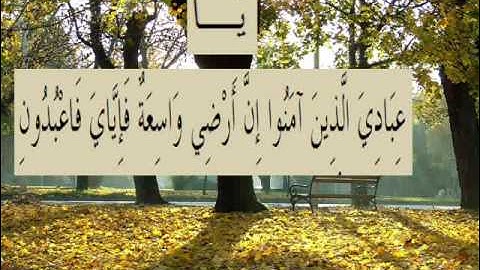 يَا
عِبَادِيَ الَّذِينَ آمَنُوا إِنَّ أَرْضِي وَاسِعَةٌ فَإِيَّايَ فَاعْبُدُونِ